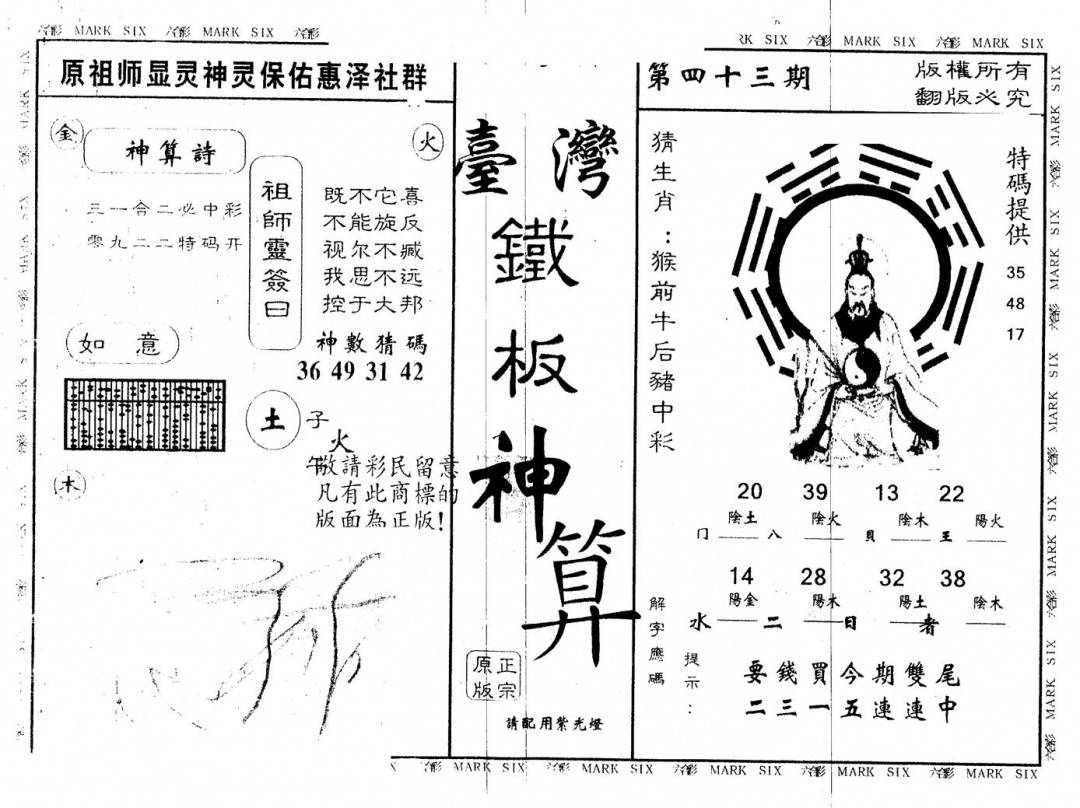 六合彩 MARK SIX 六合彩 MARK SIX 六合彩
RK SIX 六合彩 MARK SIX 六合彩 MARK SIX
原祖师显灵神灵保佑惠泽社群
金
火
神算詩
三一合二必中彩
零九二二特码开
祖師靈簽曰
既不它喜
不能旋反
视尔不臧
我思不远
控于大邦
如意
神數猜碼
36 49 31 42
土
子
火
午
木
敬請彩民留意
凡有此商標的
版面為正版!
臺灣
鐵
板
神
算
正宗
原版
請配用紫光燈
第四十三期
版權所有
翻版必究
猜生肖:猴前牛后豬中彩
特碼提供
35
48
17
20 39 13 22
陰土 陰火 陰木 陽火
门 八 貝 王
14 28 32 38
陽金 陽木 陽土 陰木
水 二 日 者
解字應碼
提示:
要錢買今期雙尾
二三一五連連中
六合彩 MARK SIX 六合彩 MARK SIX 六合彩 MARK SIX 六合彩 MARK SIX 六合彩 MARK SIX